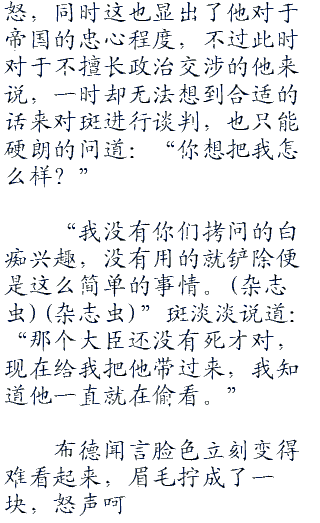 怒，同时这也显出了他对于
帝国的忠心程度，不过此时
对于不擅长政治交涉的他来
说，一时却无法想到合适的
话来对斑进行谈判，也只能
硬朗的问道：“你想把我怎
么样？”
“我没有你们拷问的白
痴兴趣，没有用的就铲除便
是这么简单的事情。(杂志
虫)(杂志虫)”斑淡淡说道：
“那个大臣还没有死才对，
现在给我把他带过来，我知
道他一直就在偷看。”
布德闻言脸色立刻变得
难看起来，眉毛拧成了一
块，怒声呵